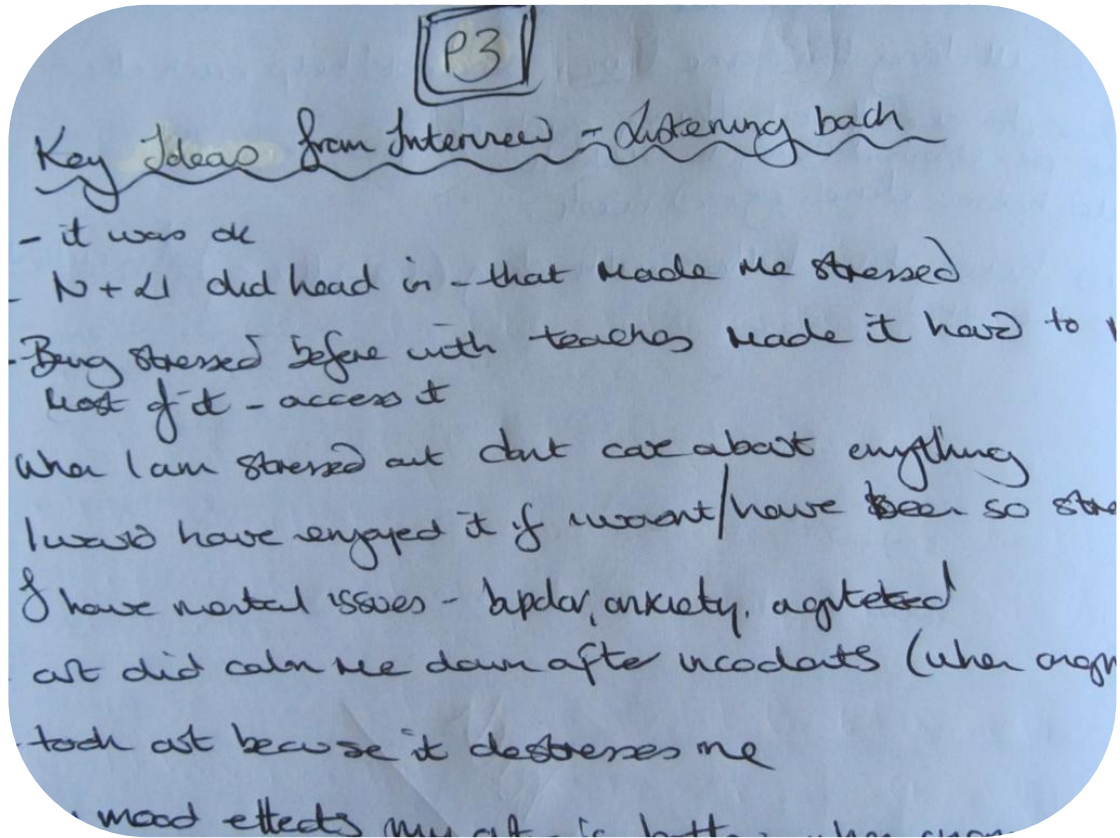 P3
Key Ideas from Interview - Listening back
- it was ok
- N + LI did head in - that made me stressed
- Being stressed before with teachers made it hard to
most of it - access it
When I am stressed out dont care about anything
I would have enjoyed it if I wasnt/have been so
I have mental issues - bipolar, anxiety, agitated
art did calm me down after incodents (when
- took art because it destresses me
mood effects my art - is